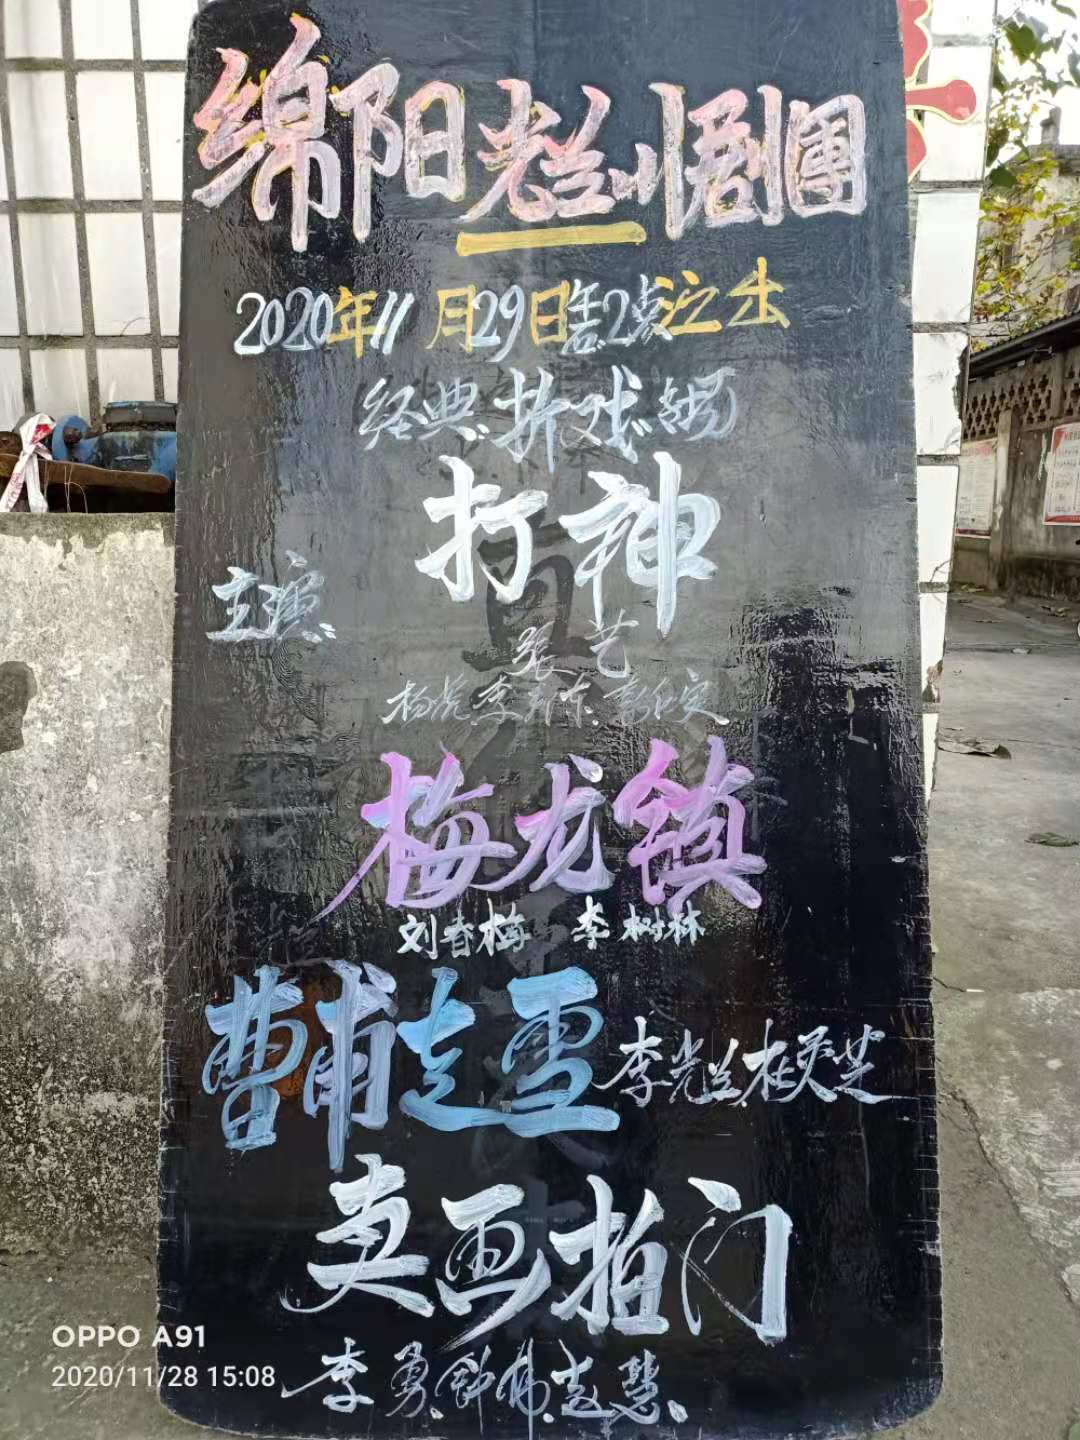 绵阳光兰川剧團
2020年11月29日 2点演出
经典折戏
打神
主演
张艺
杨虎 李 东
梅龙镇
刘春梅 李树林
曹甫走雪 李光兰 杜灵芝
卖画拍门
李勇 钟 赵慧
OPPO A91
2020/11/28 15:08